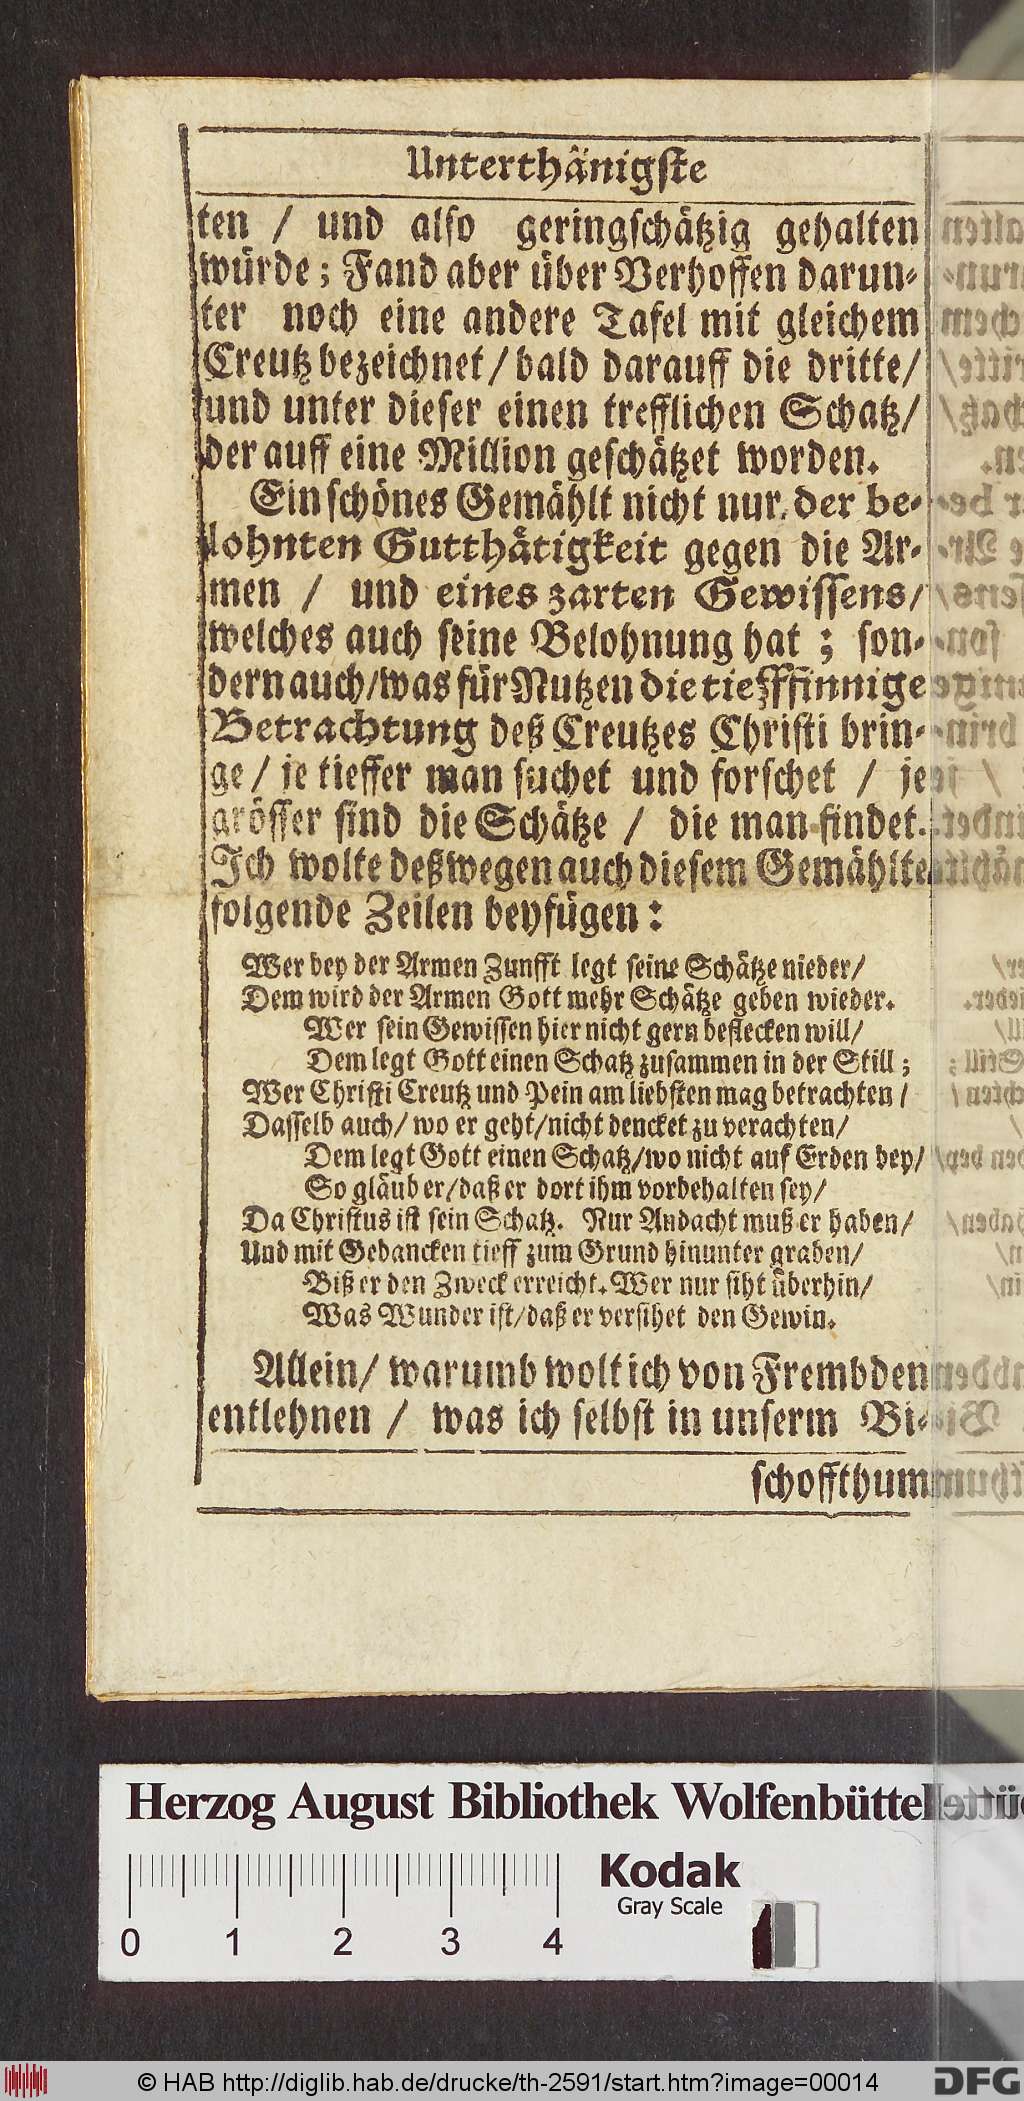 Unterthänigste
ten / und also geringschätzig gehalten
würde; Fand aber über Verhoffen darun-
ter noch eine andere Tafel mit gleichem
Creutz bezeichnet / bald darauff die dritte /
und unter dieser einen trefflichen Schatz /
der auff eine Million geschätzet worden.
Ein schönes Gemählt nicht nur der be-
lohnten Gutthätigkeit gegen die Ar-
men / und eines zarten Gewissens /
welches auch seine Belohnung hat; son-
dern auch / was für Nutzen die tiefffinnige
Betrachtung deß Creutzes Christi brin-
ge / je tieffer man suchet und forschet / je
grösser sind die Schätze / die man findet.
Ich wolte deßwegen auch diesem Gemählte
folgende Zeilen beyfügen:
Wer bey der Armen Zunfft legt seine Schätze nieder /
Dem wird der Armen Gott mehr Schätze geben wieder.
Wer sein Gewissen hier nicht gern beflecken will /
Dem legt Gott einen Schatz zusammen in der Still;
Wer Christi Creutz und Pein am liebsten mag betrachten /
Dasselb auch / wo er geht / nicht dencket zu verachten /
Dem legt Gott einen Schatz / wo nicht auf Erden bey /
So gläub er / daß er dort ihm vorbehalten sey /
Da Christus ist sein Schatz. Nur Andacht muß er haben /
Und mit Gedancken tieff zum Grund hinunter graben /
Biß er den Zweck erreicht. Wer nur siht überhin /
Was Wunder ist / daß er versihet den Gewin.
Allein / warumb wolt ich von Frembden
entlehnen / was ich selbst in unserm Bi-
schoffthum
Herzog August Bibliothek Wolfenbüttel
Kodak
Gray Scale
0 1 2 3 4
© HAB http://diglib.hab.de/drucke/th-2591/start.htm?image=00014
DFG